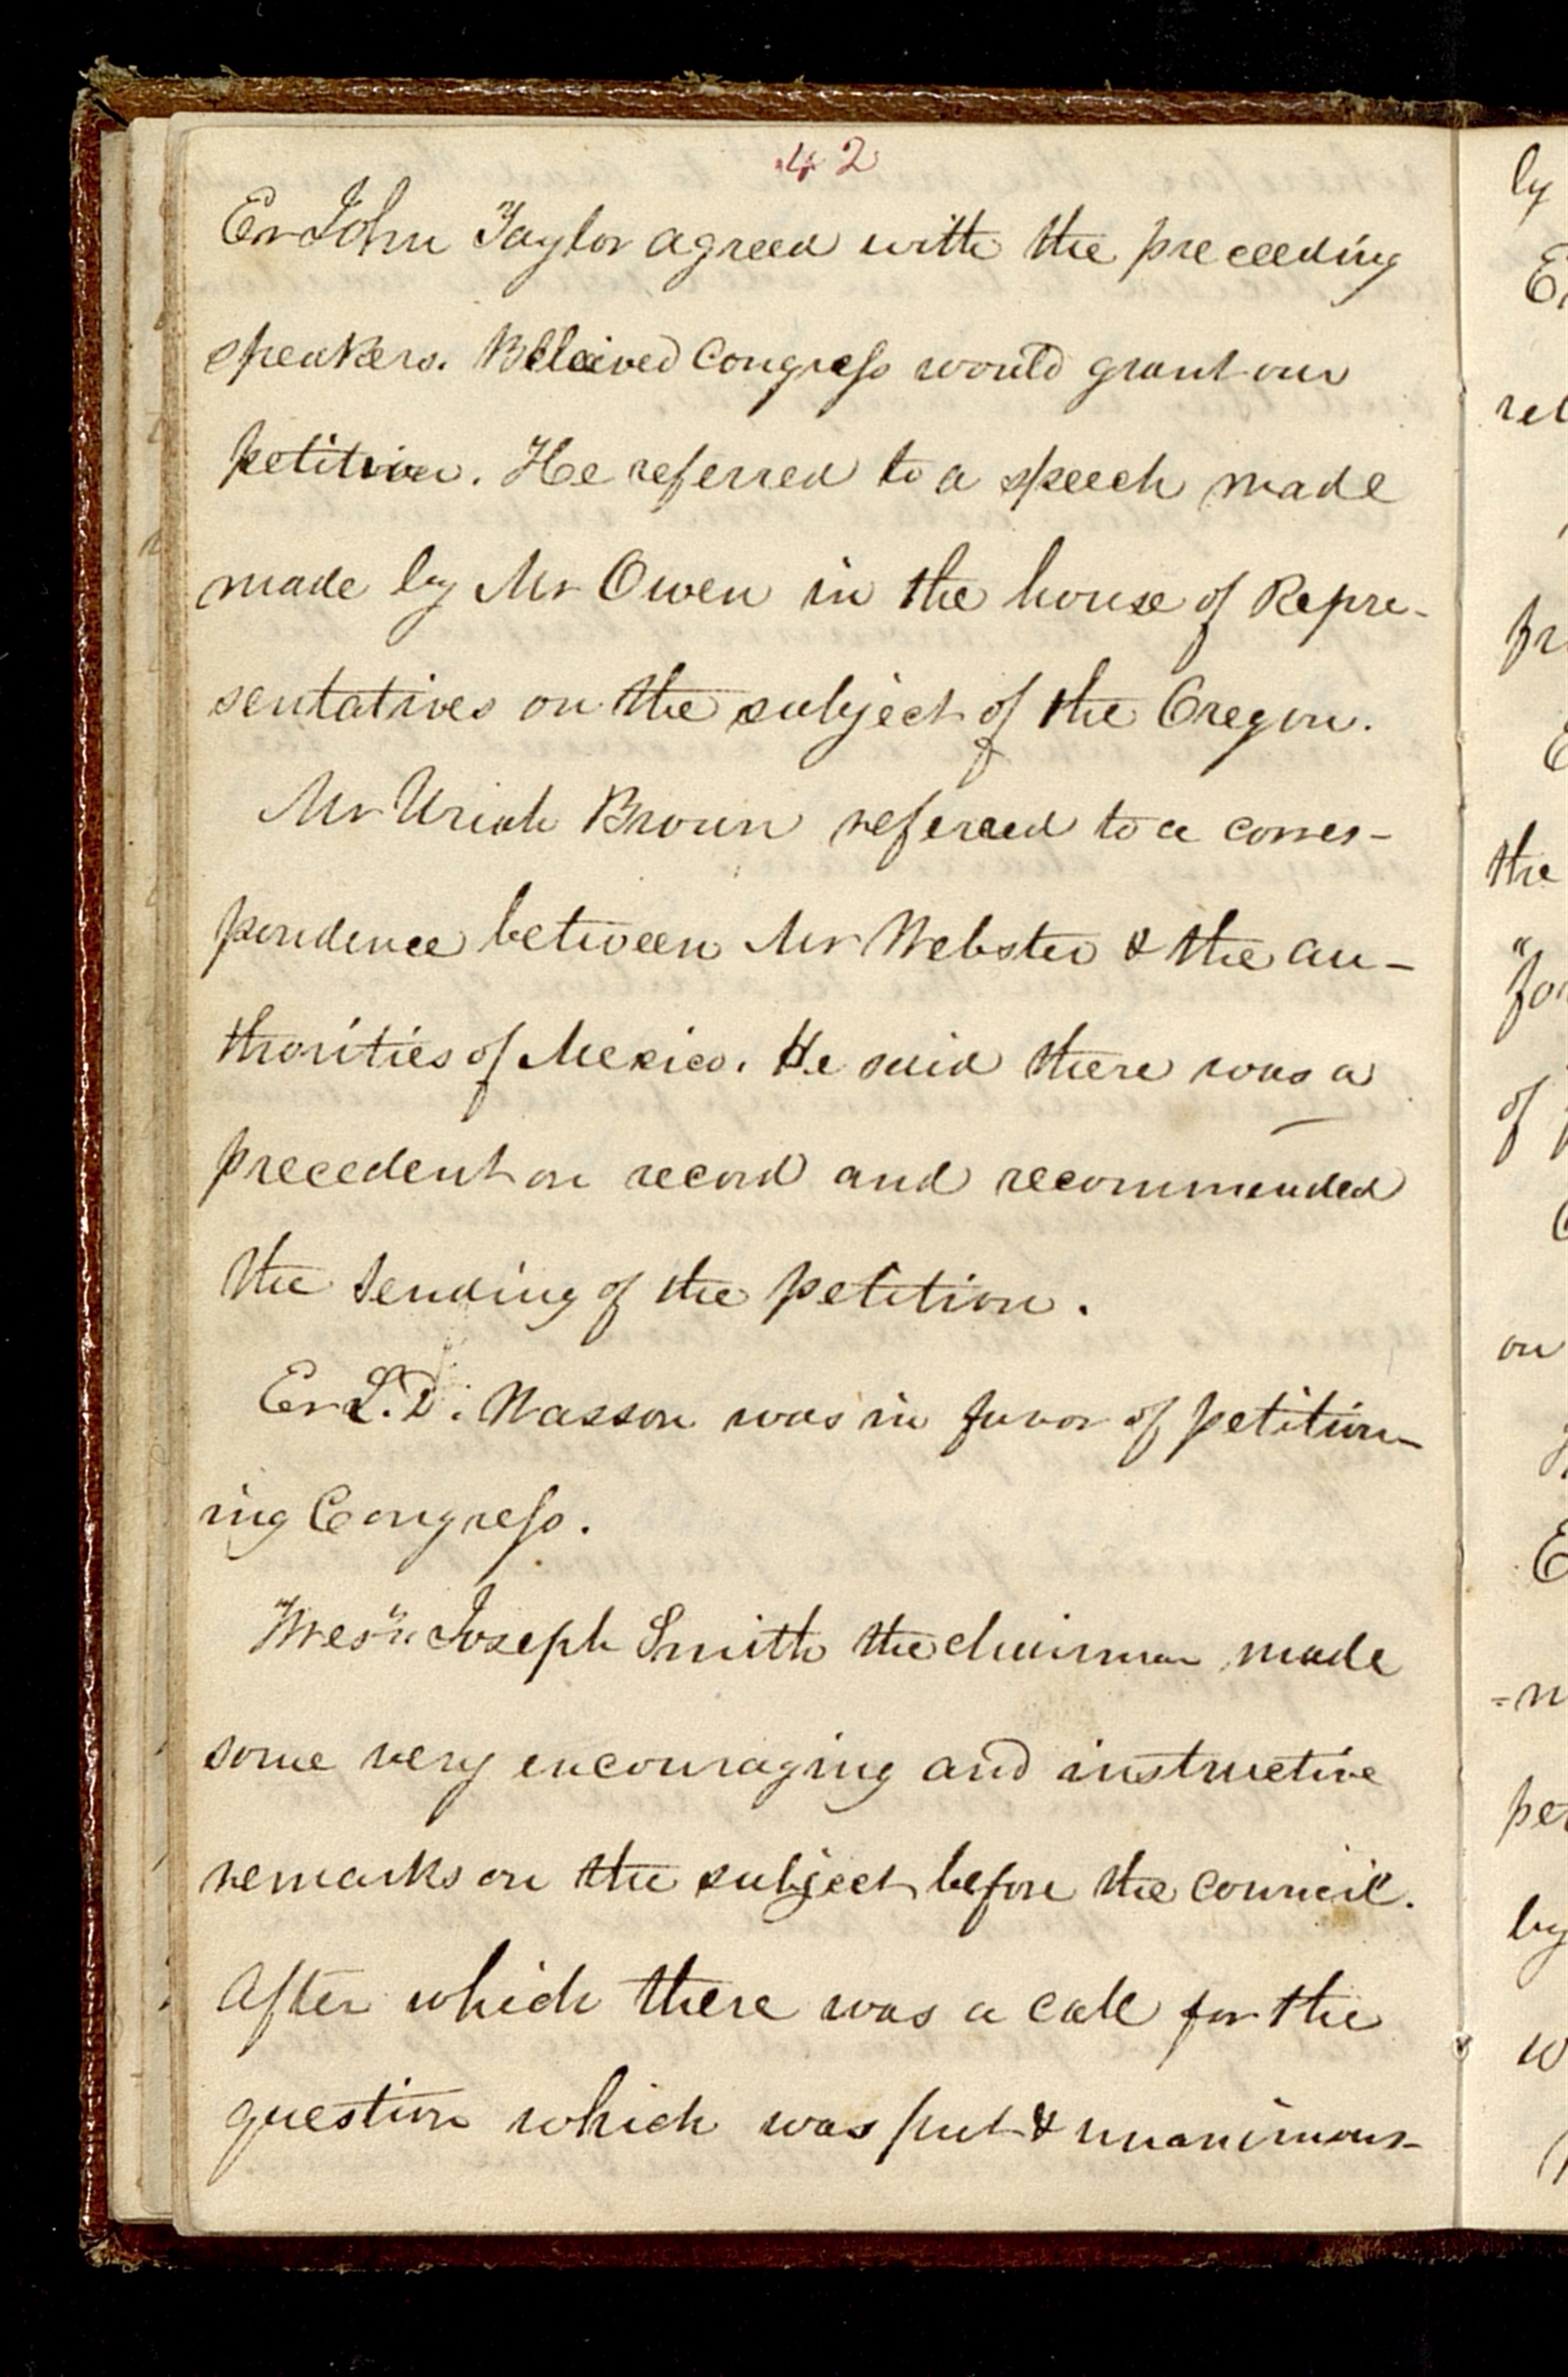 42
Er John Taylor agreed with the preceeding
speakers. Beleived Congress would grant our
petition. He referred to a speech made
made by Mr Owen in the house of Repre-
sentatives on the subject of the Oregon.
Mr Uriah Brown referred to a corres-
pondence between Mr Webster & the au-
thorities of Mexico. He said there was a
precedent on record and recommended
the sending of the petition.
Er L. D. Wasson was in favor of petition-
ing Congress.
Joseph Smith the chairman made
some very encouraging and instructive
remarks on the subject before the council.
After which there was a call for the
question which was put & unanimous-
ly
rel
the
of
on
by